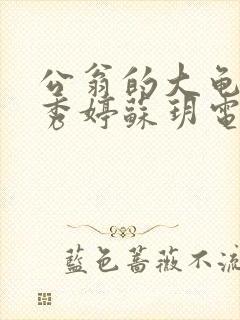 公翁的大龟
秀婷蘇玥電
藍色薔薇不流